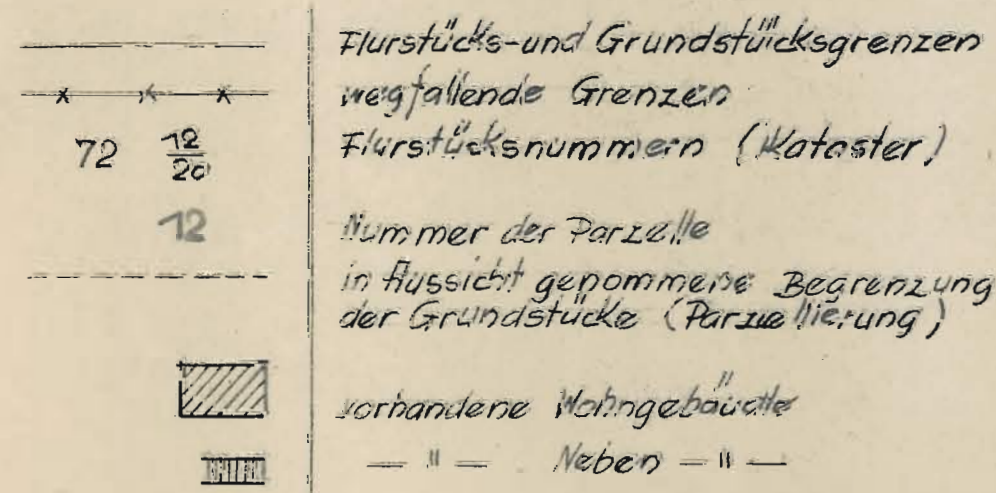 Flurstücks-und Grundstücksgrenzen
x x x wegfallende Grenzen
72 12/20 Flurstücksnummern (Kataster)
12 Nummer der Parzelle
in Aussicht genommene Begrenzung
der Grundstücke (Parzellierung)
vorhandene Wohngebäude
— " — Neben — " —